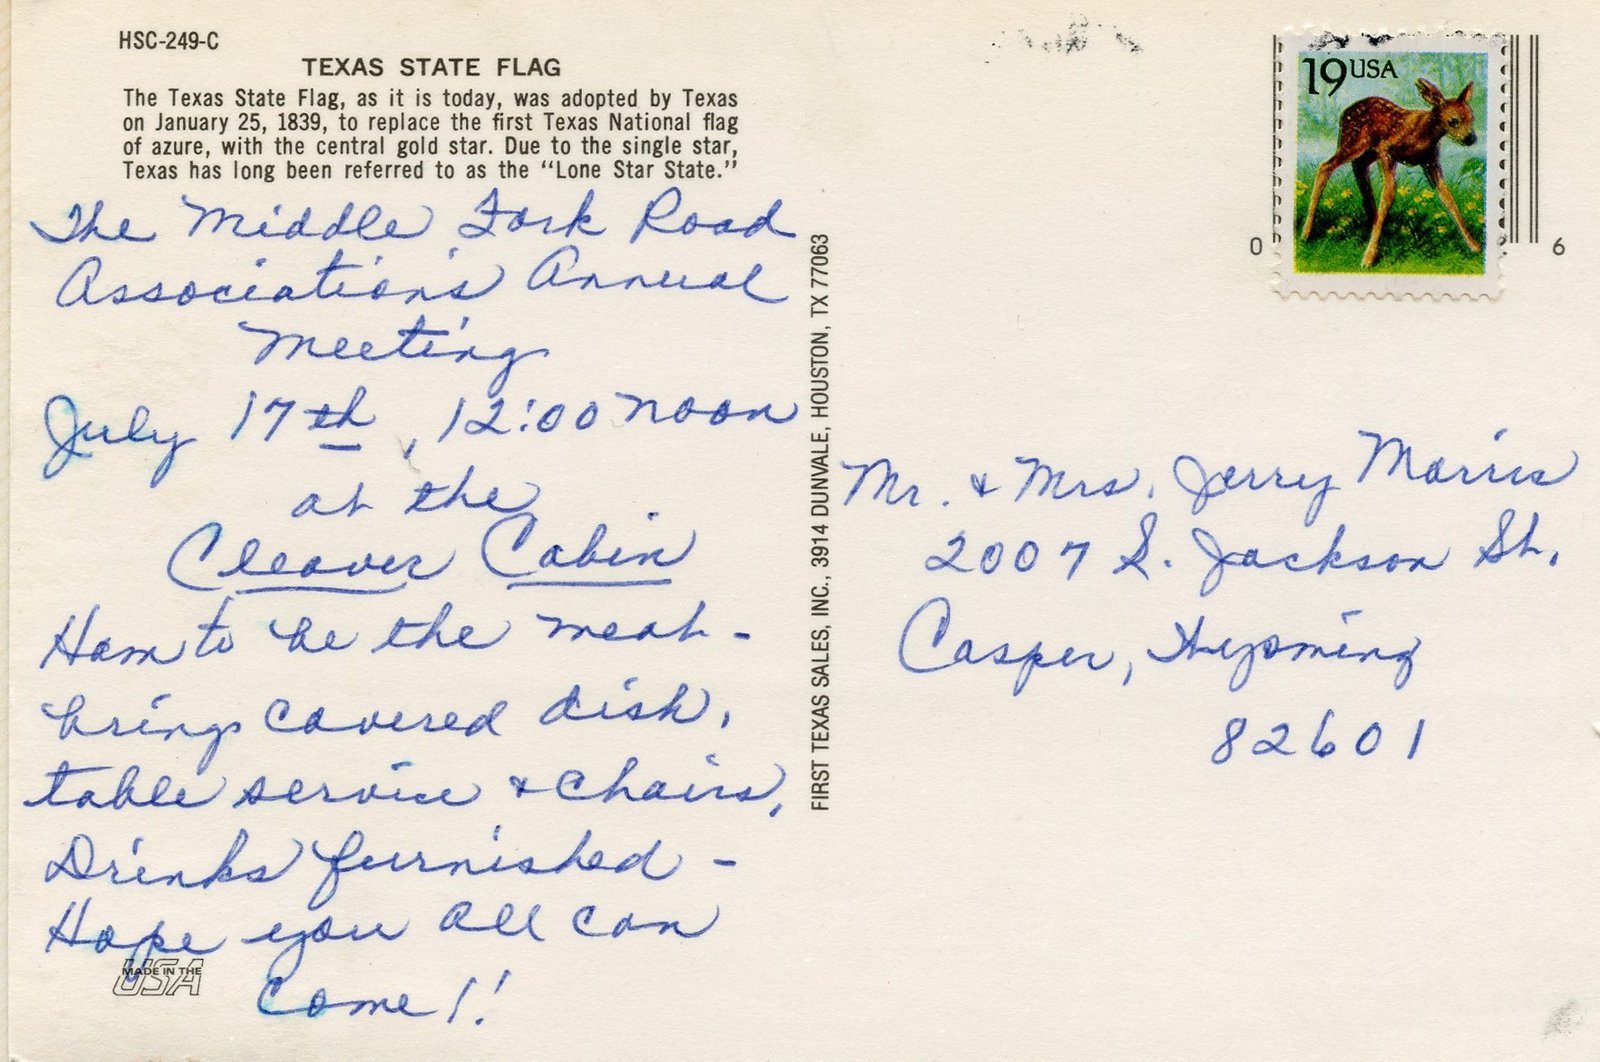 HSC-249-C
TEXAS STATE FLAG
The Texas State Flag, as it is today, was adopted by Texas
on January 25, 1839, to replace the first Texas National flag
of azure, with the central gold star. Due to the single star,
Texas has long been referred to as the "Lone Star State."
The Middle Fork Road
Association's Annual
Meeting
July 17th, 12:00 noon
at the
Cleaver Cabin
Ham to be the meat -
bring covered dish,
table service & chairs,
Drinks furnished -
Hope you all can
come!!
MADE IN THE
USA
FIRST TEXAS SALES, INC., 3914 DUNVALE, HOUSTON, TX 77063
19 USA
0 6
Mr. & Mrs. Jerry Morris
2007 S. Jackson St.
Casper, Wyoming
82601